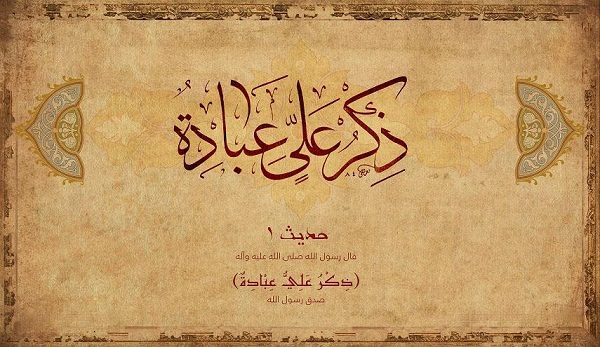 ذِكْرُ عَلِيٍّ عِبَادَةٌ
حديث ١
قال رسول الله صلى الله عليه وآله
(ذِكْرُ عَلِيٍّ عِبَادَةٌ)
صدق رسول الله